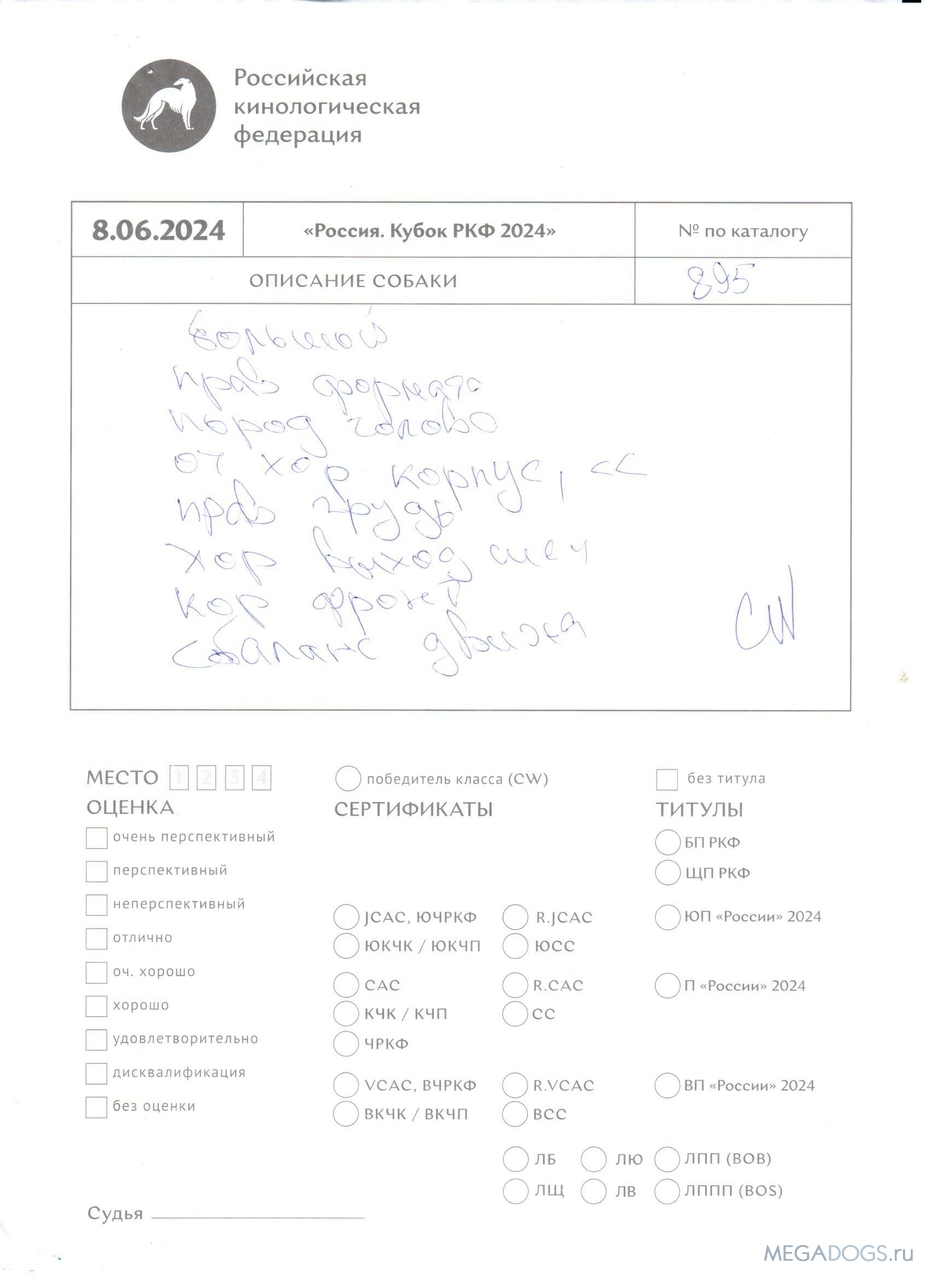 Российская
кинологическая
федерация
8.06.2024 «Россия. Кубок РКФ 2024» № по каталогу
ОПИСАНИЕ СОБАКИ 895
большой
прав формата
пород голова
оч хор корпус,
прав грудь
хор выход шеи
кор фронт
сбаланс движ
CW
МЕСТО 1 2 3 4 победитель класса (CW) без титула
ОЦЕНКА СЕРТИФИКАТЫ ТИТУЛЫ
очень перспективный БП РКФ
перспективный ЩП РКФ
неперспективный JCAC, ЮЧРКФ R.JCAC ЮП «России» 2024
отлично ЮКЧК / ЮКЧП ЮСС
оч. хорошо CAC R.CAC П «России» 2024
хорошо КЧК / КЧП СС
удовлетворительно ЧРКФ
дисквалификация VCAC, ВЧРКФ R.VCAC ВП «России» 2024
без оценки ВКЧК / ВКЧП ВСС
ЛБ ЛЮ ЛПП (BOB)
ЛЩ ЛВ ЛППП (BOS)
Судья
MEGADOGS.ru